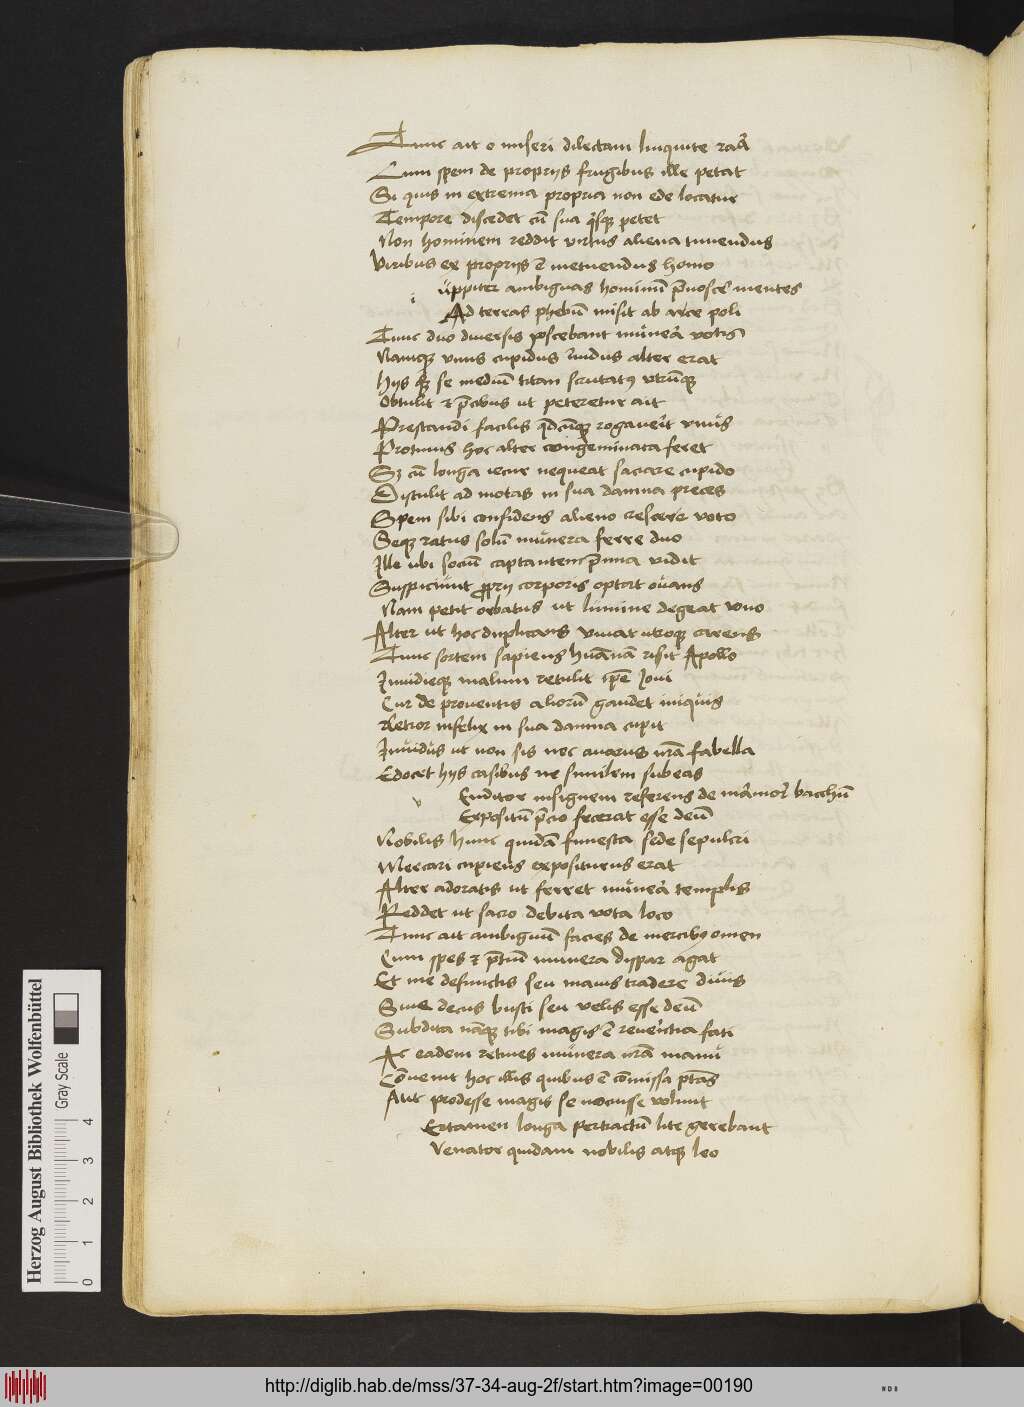 Tunc ait o miseri dilectam linquite rãa
Cum spem de proprijs frugibus ille petat
Si quis in extrema propria non ede locatur
Tempore discedet cũ sua qisqȝ petet
Non hominem reddit virtus aliena tuuendus
Viribus ex proprijs ẽ metuendus homo
i uppiter ambiguas hominũ p̃noscẽ mentes
Ad terras phebũ misit ab arce poli
Tunc duo diuersis poscebant munera votis
Namqȝ vnus cupidus inuidus alter erat
hijs qȝ se mediũ titan scrutatꝰ vtrũqȝ
Obtulit ⁊ p̃cibus ut peteretur ait
Prestandi facilis qdcũqȝ rogauerit vnus
Protinus hoc alter congeminata feret
Sȝ cũ longa iecur nequeat saciare cupido
Distulit ad motas in sua damna preces
Spem sibi confidens alieno crescere voto
Seqȝ ratus solũ munera ferre duo
Ille ubi sociũ captantem p̃mia vidit
Suppliciũnt ꝓprij corporis optat ouans
Nam petit orbatus ut lumine degeat vno
Alter ut hoc duplicans viuat utroqȝ carens
Tunc sortem sapiens humanã risit Apollo
Inuidieqȝ malum retulit ip̃e Joui
Cur de prouentis aliorũ gaudet iniquis
Letior infelix in sua damna cupit
Inuidus ut non sis nec auarus nrã fabella
Edocet hijs casibus ne similem subeas
v Enditor insignem referens de marmor̃ bacchũ
Expositũ p̃cio fecerat esse deũ
Nobilis hunc quidã funesta sede sepulcri
Mercari cupiens expositurus erat
Alter adoratis ut ferret munera templis
Reddet ut sacro debita vota loco
Tunc ait ambiguũ facies de mercibꝰ omen
Cum spes ⁊ p̃tiũ munera dispar agat
Et me defunctis seu mauis tradere diuis
Siue decus busti seu velis esse deũ
Subdita nãqȝ tibi magis ẽ reuerẽtia fati
Ac eadem retines munera nrã manu
Cõuenit hoc illis quibus ẽ cõmissa ptãs
Atit prodesse magis se nocuisse volunt
Ertamen longa pertractũ lite gerebant
Venator quidam nobilis atqȝ leo
Herzog August Bibliothek Wolfenbüttel
Gray Scale
0 1 2 3 4
http://diglib.hab.de/mss/37-34-aug-2f/start.htm?image=00190